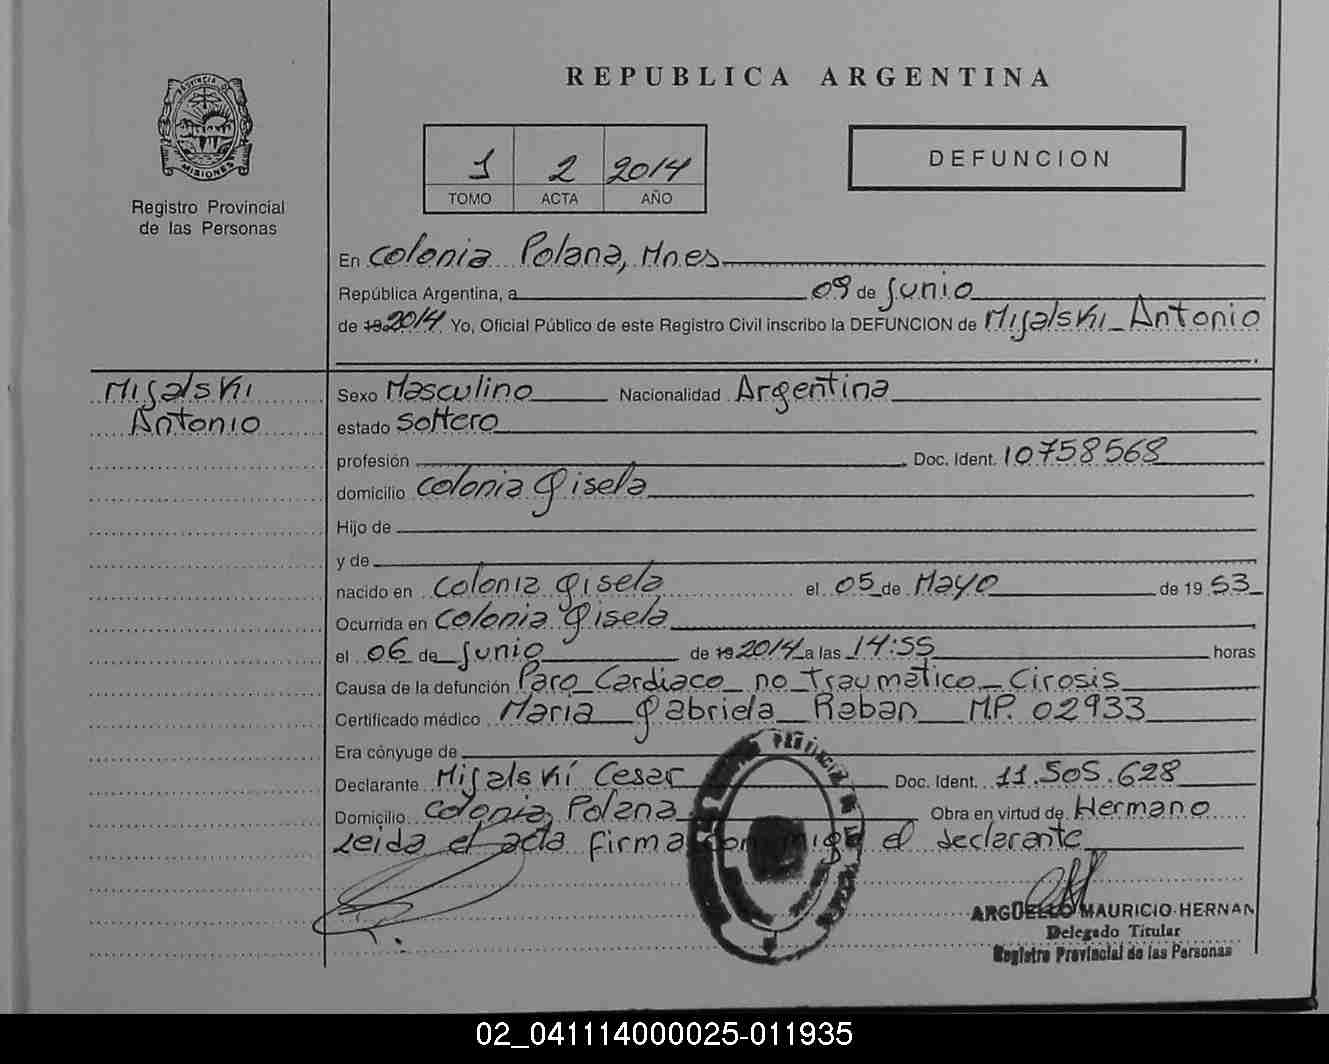 PROVINCIA DE
MISIONES
Registro Provincial
de las Personas
REPUBLICA ARGENTINA
1 2 2014
TOMO ACTA AÑO
DEFUNCION
En Colonia Polana, Mnes
República Argentina, a 09 de Junio
de 19 2014 Yo, Oficial Público de este Registro Civil inscribo la DEFUNCION de Misalski Antonio
Misalski
Antonio
Sexo Masculino Nacionalidad Argentina
estado Soltero
profesión Doc. Ident. 10758568
domicilio Colonia Gisela
Hijo de
y de
nacido en Colonia Gisela el 05 de Mayo de 19 53
Ocurrida en Colonia Gisela
el 06 de Junio de 19 2014 a las 14:55 horas
Causa de la defunción Paro Cardiaco no traumático Cirosis
Certificado médico Maria Gabriela Raban M.P. 02933
Era cónyuge de
Declarante Misalskí Cesar Doc. Ident. 11.505.628
Domicilio Colonia Polana Obra en virtud de Hermano
Leida el acta firma conmigo el declarante
ARGÜELLO MAURICIO HERNAN
Delegado Titular
Registro Provincial de las Personas
02_041114000025-011935